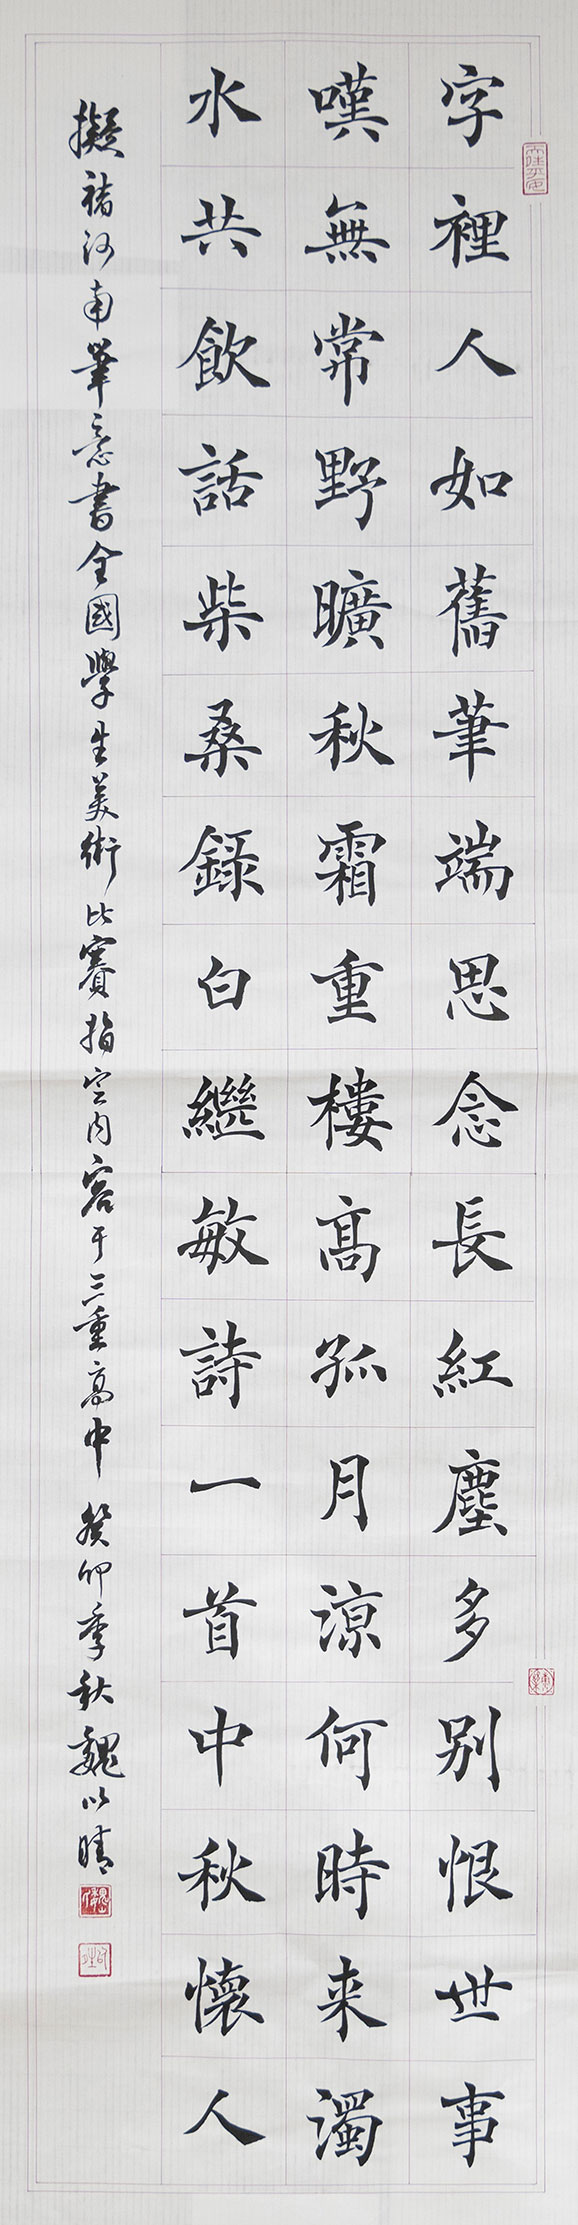 字裡人如舊筆端思念長紅塵多別恨世事
嘆無常野曠秋霜重樓高孤月涼何時来濁
水共飲話柴桑錄白繼敏詩一首中秋懷人
擬褚河南筆意書全國學生美術比賽指定內容于三重高中 癸卯季秋魏以晴